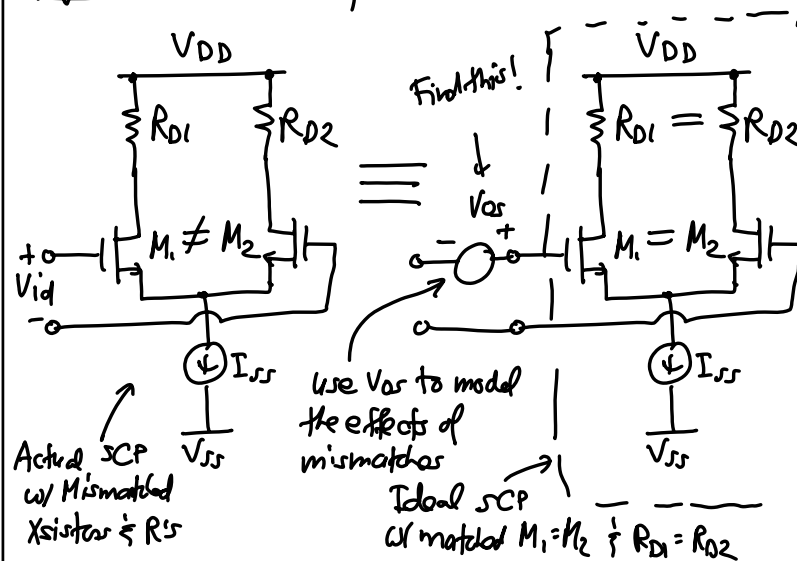 V_DD
R_D1
R_D2
M_1 ≠ M_2
+
V_id
-
I_SS
V_SS
Actual SCP
w/ Mismatched
Xsistors & R's
≡
Find this!
V_OS
- +
use V_OS to model
the effects of
mismatches
V_DD
R_D1 = R_D2
M_1 = M_2
I_SS
V_SS
Ideal SCP
w/ matched M_1=M_2 & R_D1=R_D2